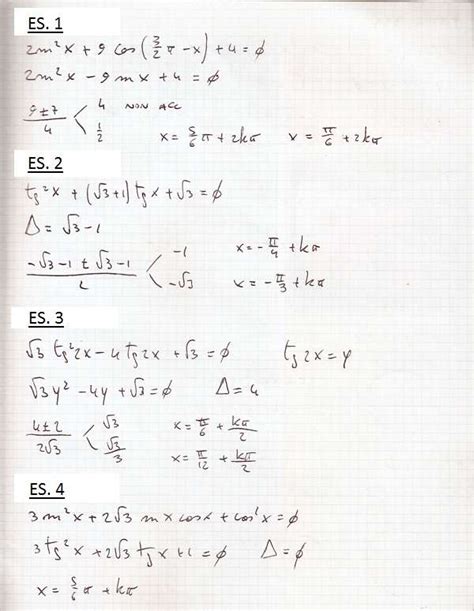 ES. 1
2 sin²x + 9 cos(3/2 π - x) + 4 = ∅
2 sin²x - 9 sin x + 4 = ∅
(9 ± 7)/4 < 4 NON ACC
1/2 x = 5/6 π + 2kπ x = π/6 + 2kπ
ES. 2
tg²x + (√3+1) tg x + √3 = ∅
Δ = √3 - 1
(-√3 - 1 ± √3 - 1)/2 < -1 x = -π/4 + kπ
-√3 x = -π/3 + kπ
ES. 3
√3 tg²2x - 4 tg 2x + √3 = ∅ tg 2x = y
√3 y² - 4y + √3 = ∅ Δ = 4
(4 ± 2)/2√3 < √3 x = π/6 + kπ/2
√3/3 x = π/12 + kπ/2
ES. 4
3 sin²x + 2√3 sin x cos x + cos²x = ∅
3 tg²x + 2√3 tg x + 1 = ∅ Δ = ∅
x = 5/6 π + kπ